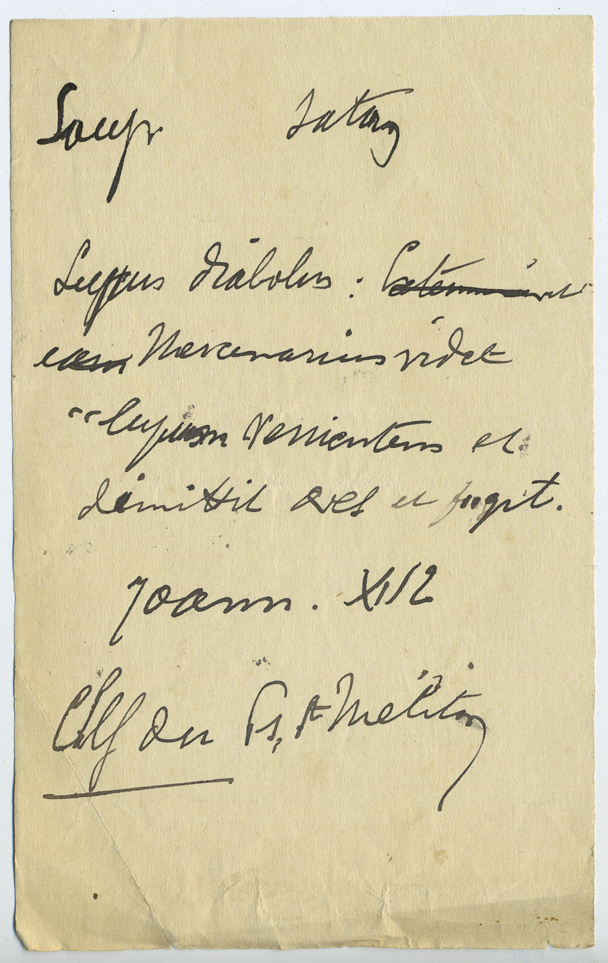 Loup Satan
Lupus diabolus : Exterminavit
eam Mercenarius videt
"lupum venientem et
dimittit oves et fugit.
Joann. X, 12
Clef du Ps, St Méliton